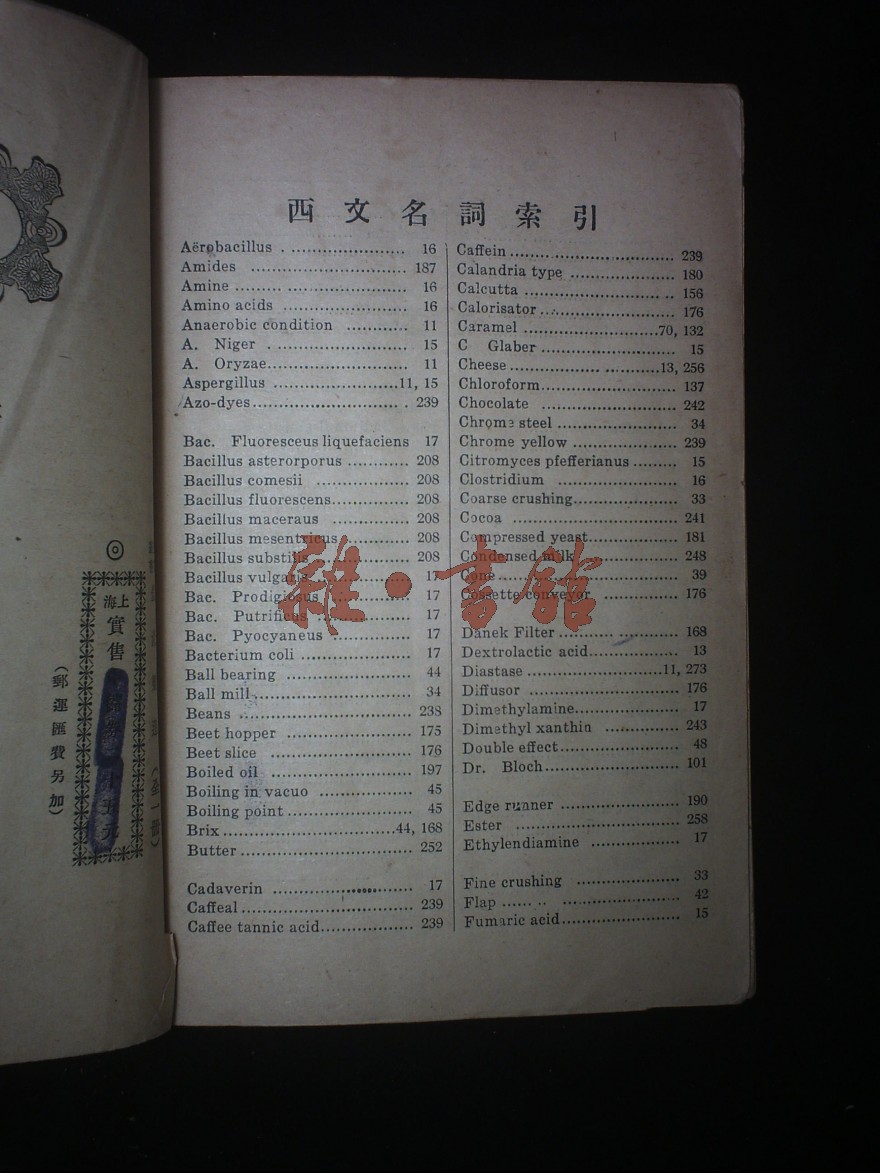 西文名詞索引
Aërobacillus . ....................... 16
Amides ............................ 187
Amine ......... ...................... 16
Amino acids ....................... 16
Anaerobic condition ............ 11
A. Niger . .......................... 15
A. Oryzae.......................... 11
Aspergillus .......................11, 15
Azo-dyes.......................... . 239
Bac. Fluoresceus liquefaciens 17
Bacillus asterorporus ............ 208
Bacillus comesii .................. 208
Bacillus fluorescens............... 208
Bacillus maceraus ............... 208
Bacillus mesentricus ............ 208
Bacillus substilis .................. 208
Bacillus vulgatis .................. 17
Bac. Prodigiosus .................. 17
Bac. Putrificus .................. 17
Bac. Pyocyaneus ............... 17
Bacterium coli .................... 17
Ball bearing ....................... 44
Ball mill............................ 34
Beans ............................... 238
Beet hopper ....................... 175
Beet slice .......................... 176
Boiled oil .......................... 197
Boiling in vacuo ................. 45
Boiling point....................... 45
Brix...............................44, 168
Butter............................... 252
Cadaverin .......................... 17
Caffeal............................... 239
Caffee tannic acid................. 239
Caffein............................... 239
Calandria type .................... 180
Calcutta ............................ 156
Calorisator.......................... 176
Caramel .........................70, 132
C Glaber .......................... 15
Cheese...........................13, 256
Chloroform.......................... 137
Chocolate .......................... 242
Chrome steel ...................... 34
Chrome yellow .................... 239
Citromyces pfefferianus ......... 15
Clostridium ....................... 16
Coarse crushing.................... 33
Cocoa ............................... 241
Compressed yeast................. 181
Condensed milk ................. 248
Cone ............................... 39
Cossette conveyor ............... 176
Danek Filter ....................... 168
Dextrolactic acid................. 13
Diastase .........................11, 273
Diffusor ............................ 176
Dimethylamine.................... 17
Dimethyl xanthin ............... 243
Double effect....................... 48
Dr. Bloch.......................... 101
Edge runner ....................... 190
Ester ............................... 258
Ethylendiamine ................. 17
Fine crushing .................... 33
Flap ...... .. ...................... 42
Fumaric acid....................... 15
上海
實售
(郵運匯費另加)
雜·書館